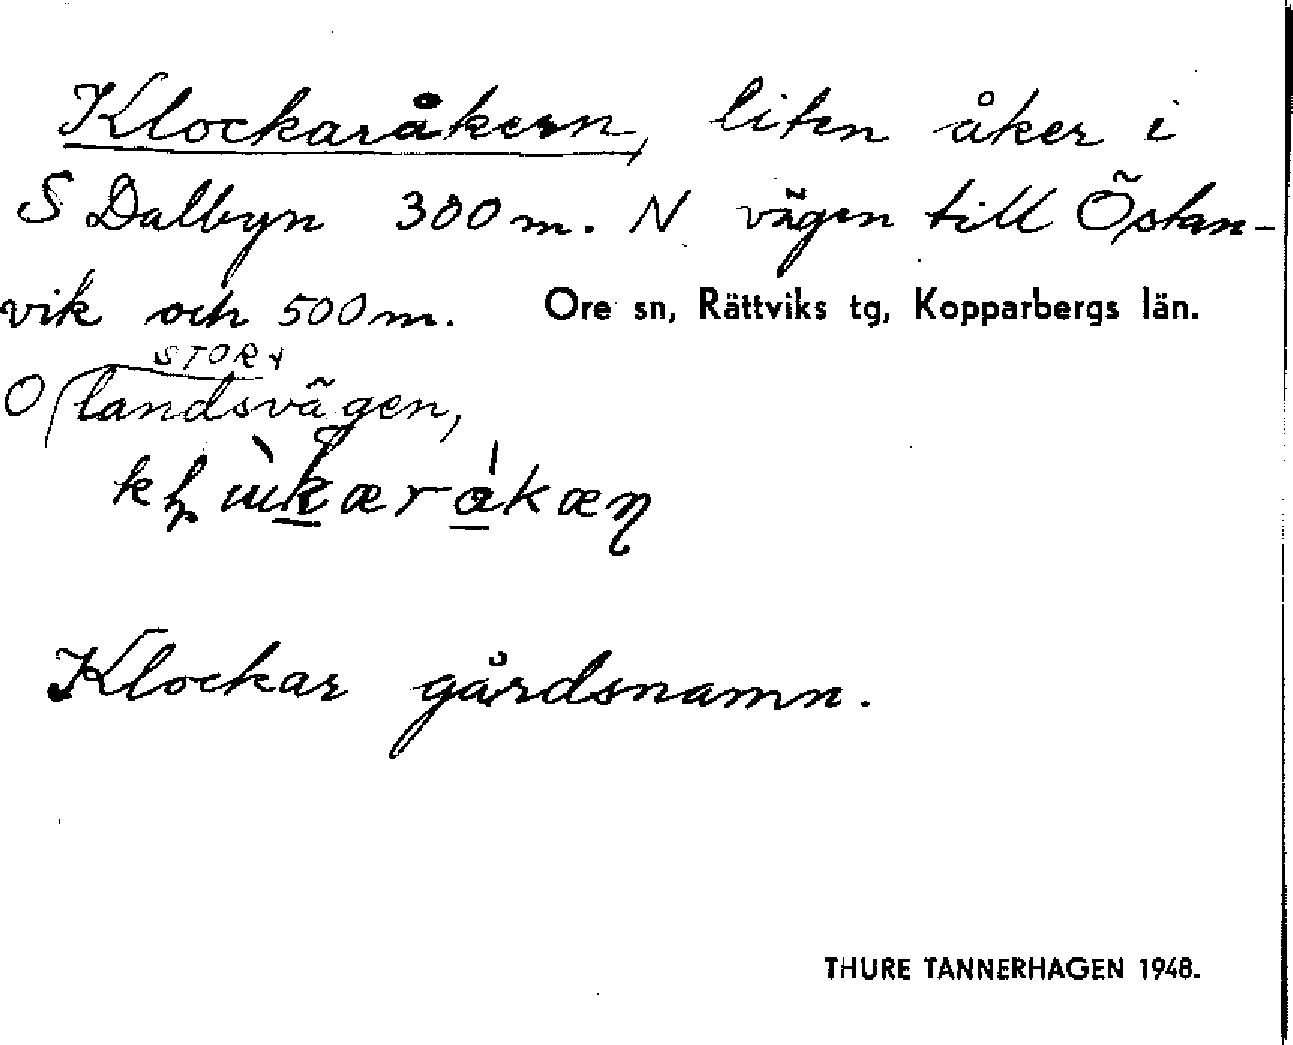 Klockaråkern, liten åker i
S Dalbyn 300 m. N vägen till Östan-
vik och 500 m. Ore sn, Rättviks tg, Kopparbergs län.
STORA
O landsvägen,
Klockar gårdsnamn.
THURE TANNERHAGEN 1948.